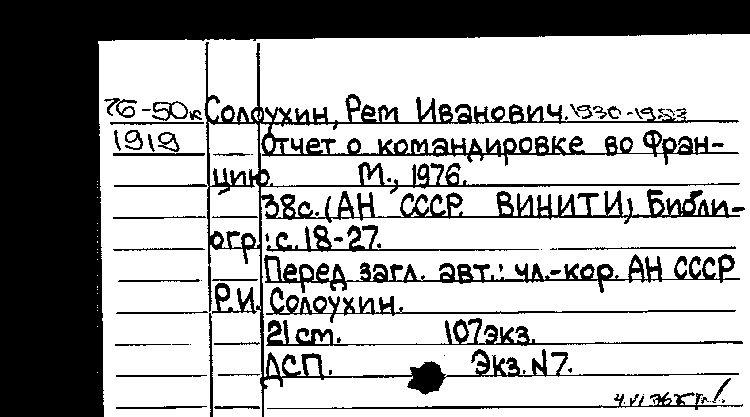 76-50к Солоухин, Рем Иванович. 1930-1988
1919 Отчет о командировке во Фран-
цию. М., 1976.
38с. (АН СССР. ВИНИТИ) Библи-
огр.: с. 18-27.
Перед загл. авт.: чл.-кор. АН СССР
Р.И. Солоухин.
21 ст. 107 экз.
ДСП. Экз. N7.